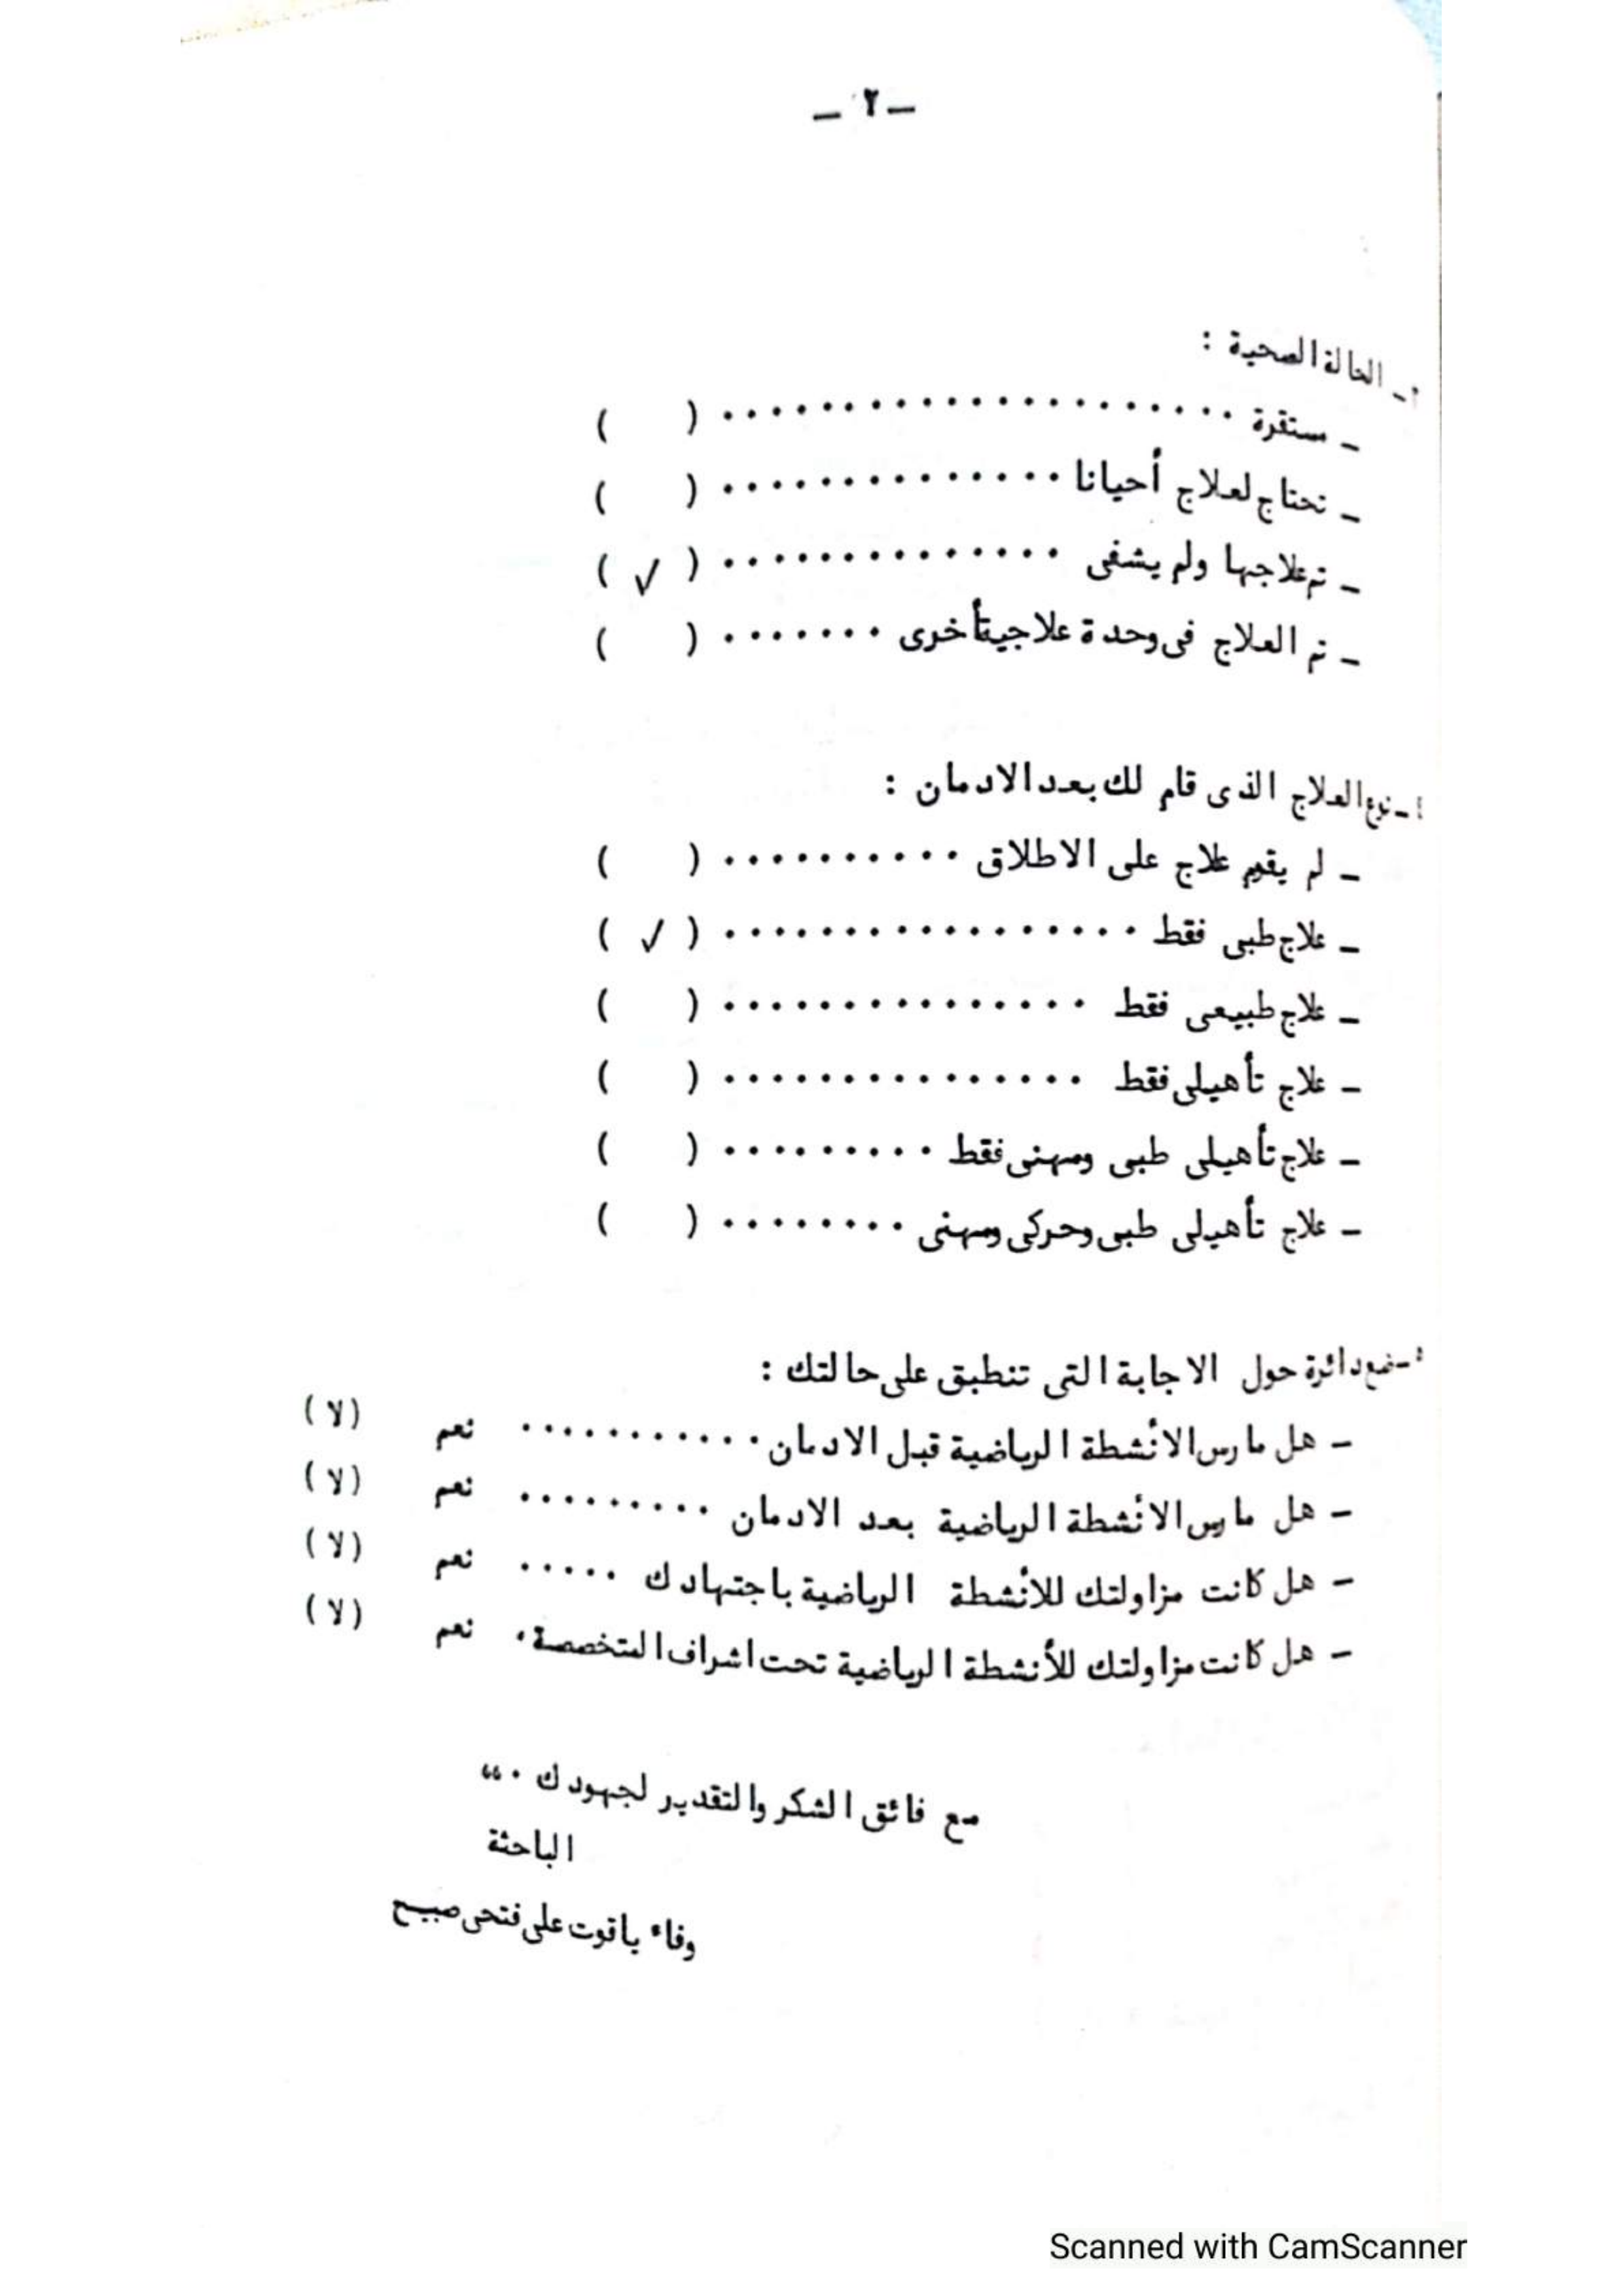 ـ ٢ ـ
الحالة الصحية :
ـ مستقرة ...................... ( )
ـ تحتاج لعلاج أحيانا ............... ( )
ـ تم علاجها ولم يشفى ............... ( ✓ )
ـ تم العلاج فى وحدة علاجية أخرى ....... ( )
ـ نوع العلاج الذى قام لك بعد الادمان :
ـ لم يقم علاج على الاطلاق .......... ( )
ـ علاج طبى فقط .................. ( ✓ )
ـ علاج طبيعى فقط ................ ( )
ـ علاج تأهيلى فقط ............... ( )
ـ علاج تأهيلى طبى ومهنى فقط ......... ( )
ـ علاج تأهيلى طبى وحركى ومهنى ........ ( )
ـ ضع دائرة حول الاجابة التى تنطبق على حالتك :
ـ هل مارس الأنشطة الرياضية قبل الادمان ........... نعم (لا)
ـ هل مارس الأنشطة الرياضية بعد الادمان ......... نعم (لا)
ـ هل كانت مزاولتك للأنشطة الرياضية باجتهادك ..... نعم (لا)
ـ هل كانت مزاولتك للأنشطة الرياضية تحت اشراف المتخصصة . نعم (لا)
مع فائق الشكر والتقدير لجهودك . ،،
الباحثة
وفاء ياقوت على فتحى صبيح
Scanned with CamScanner